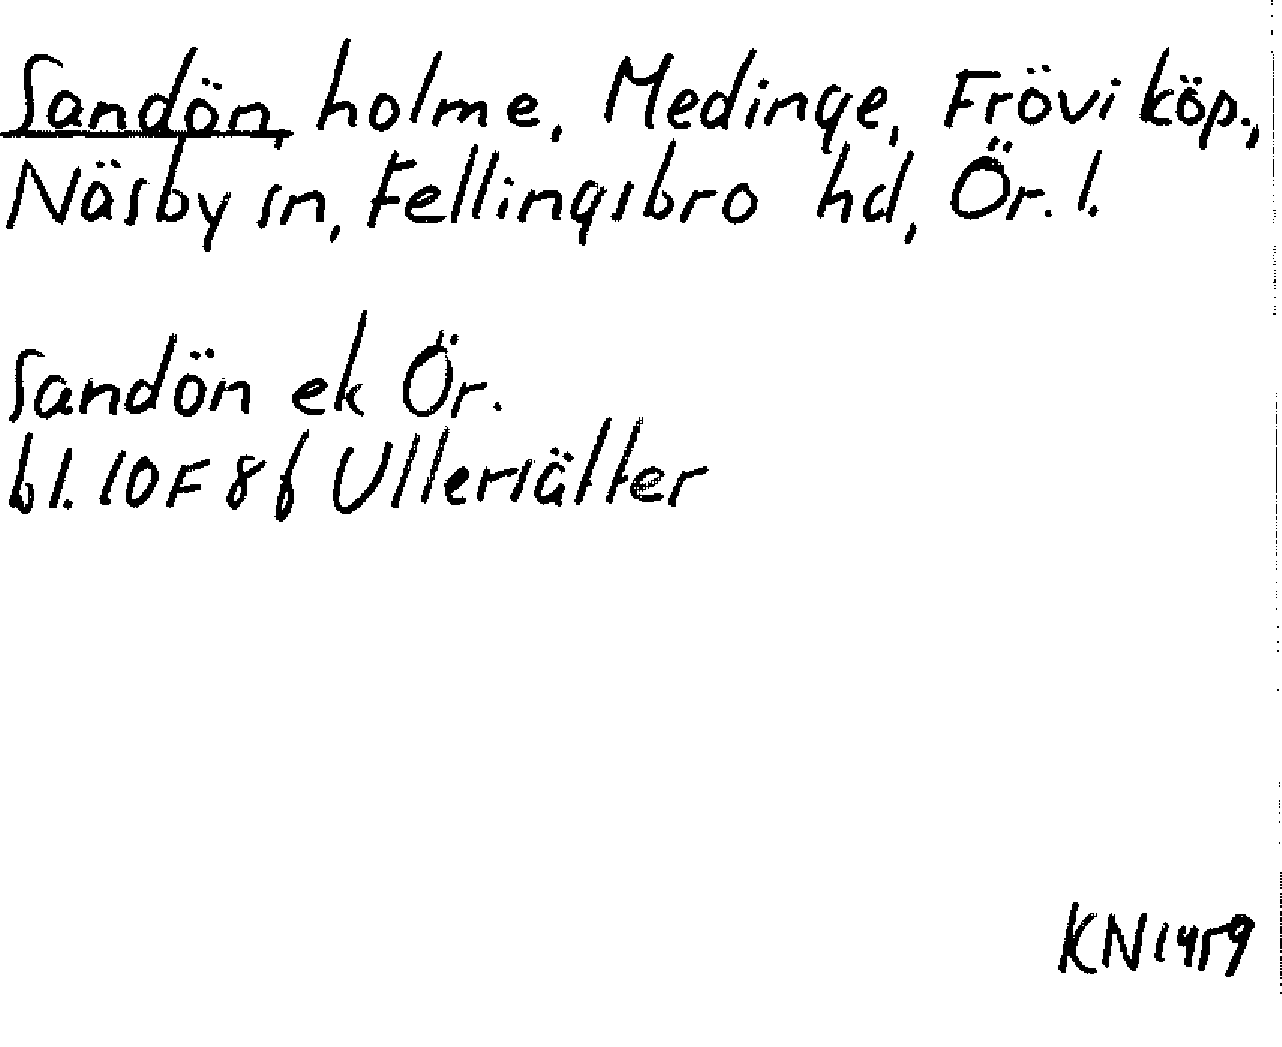 Sandön, holme, Medinge, Frövi köp.,
Näsby sn, Fellingsbro hd, Ör. l.
Sandön ek Ör.
bl. 10F 8f Ullersätter
KN 1459